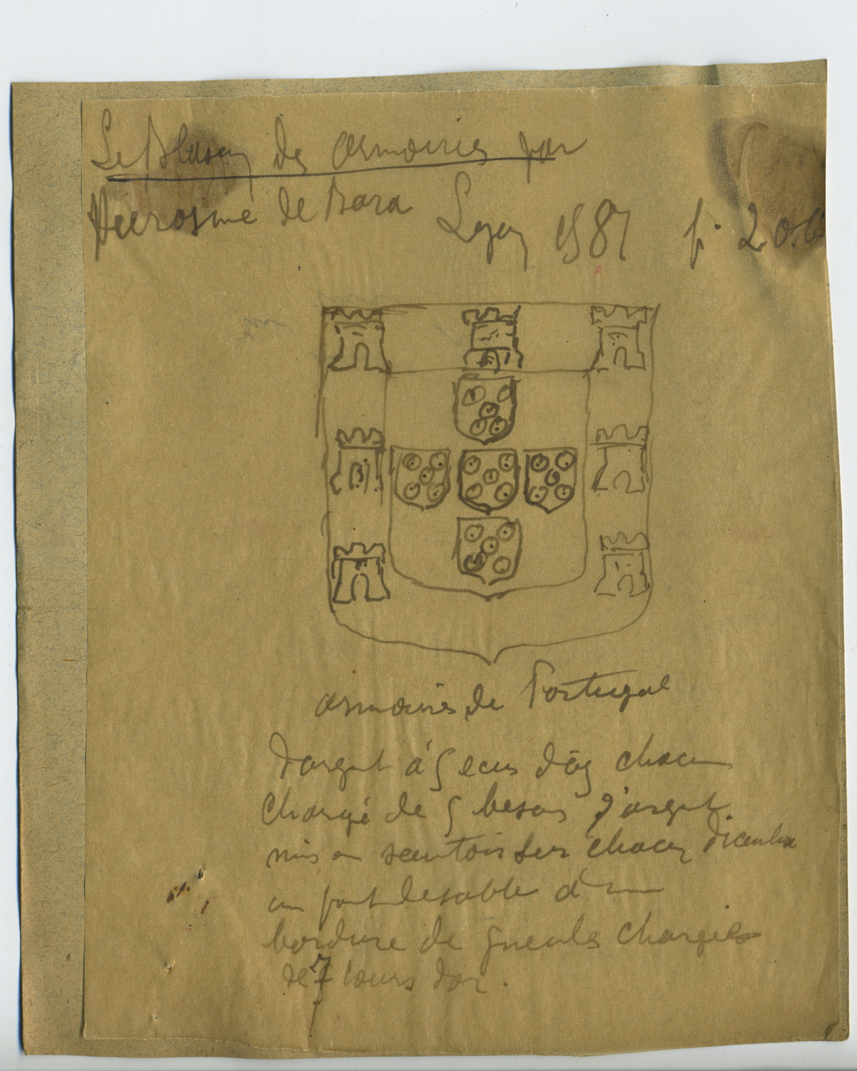 Le Blason des armoiries par
Hierosme de Bara Lyon 1581 p. 206
armoiries de Portugal
d'argent à 5 ecus d'az chacun
chargé de 5 besans d'argent
mis en sautoir sur chacun
un point de sable
bordure de gueules chargée
de 7 tours d'or.